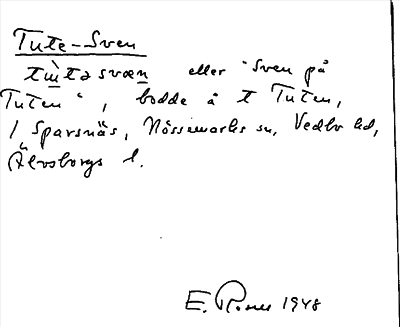 Tute-Sven
tɯ̀tə svæn eller "Sven på
Tuten", bodde å t Tuten,
1 Sparsnäs, Nössemarks sn, Vedbo hd,
Älvsborgs l.
E. Rosell 1948